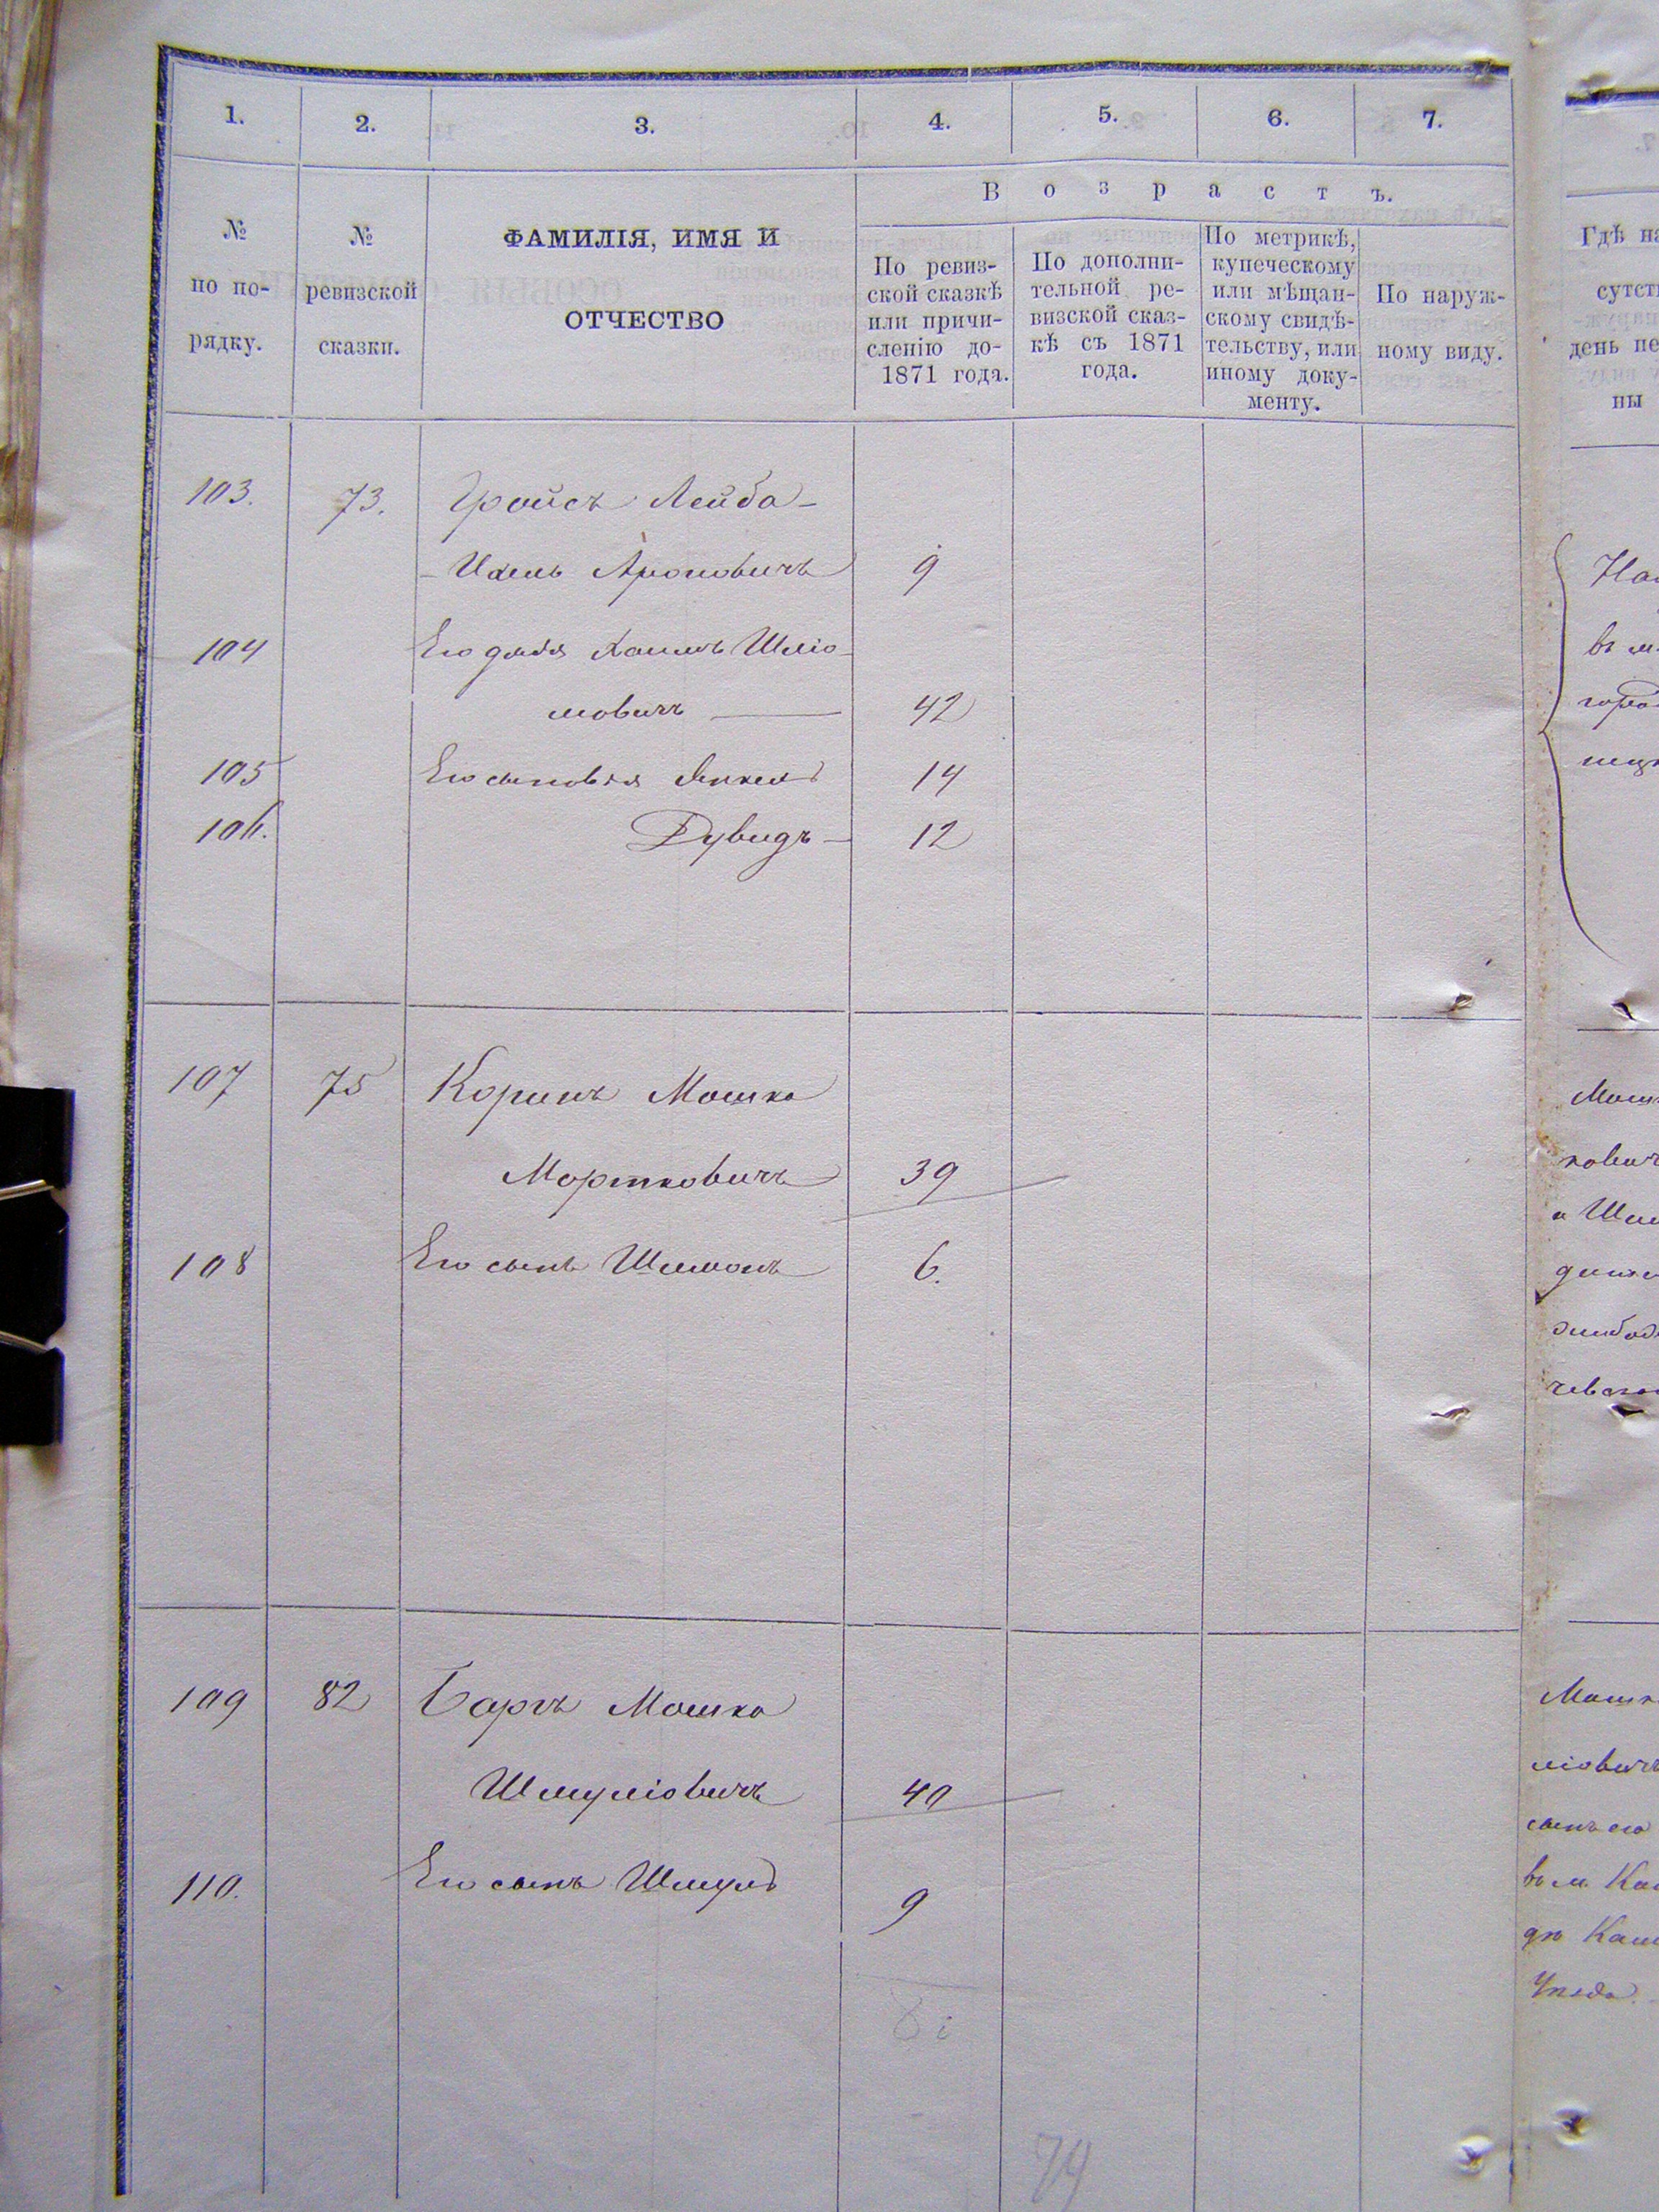 1. 2. 3. 4. 5. 6. 7.
В о з р а с т ъ.
№ по по-рядку.
№ ревизской сказки.
ФАМИЛІЯ, ИМЯ И
ОТЧЕСТВО
По ревиз-
ской сказкѣ
или причи-
сленію до-
1871 года.
По дополни-
тельной ре-
визской сказ-
кѣ съ 1871
года.
По метрикѣ,
купеческому
или мѣщан-
скому свидѣ-
тельству, или
иному доку-
менту.
По наруж-
ному виду.
103. 73. Гройсъ Лейба-
-Ицель Ароновичъ 9
104 Его дядя Хаимъ Шліо-
мовичъ 42
105 Его сыновья Янкель 14
106. Дувидъ 12
107 75 Коринъ Мошко
Мортковичъ 39
108 Его сынъ Шимонъ 6.
109 82 Баръ Мошко
Шмуліовичъ 40
110. Его сынъ Шмуль 9
74
Гдѣ на
сутст
день пе
ны
въ м.
горо
Мошк
ковичъ
и Шим
чевско
Мошк
ліовичъ
сынъ его
въ м. Ка
дъ Кам
уѣзда.